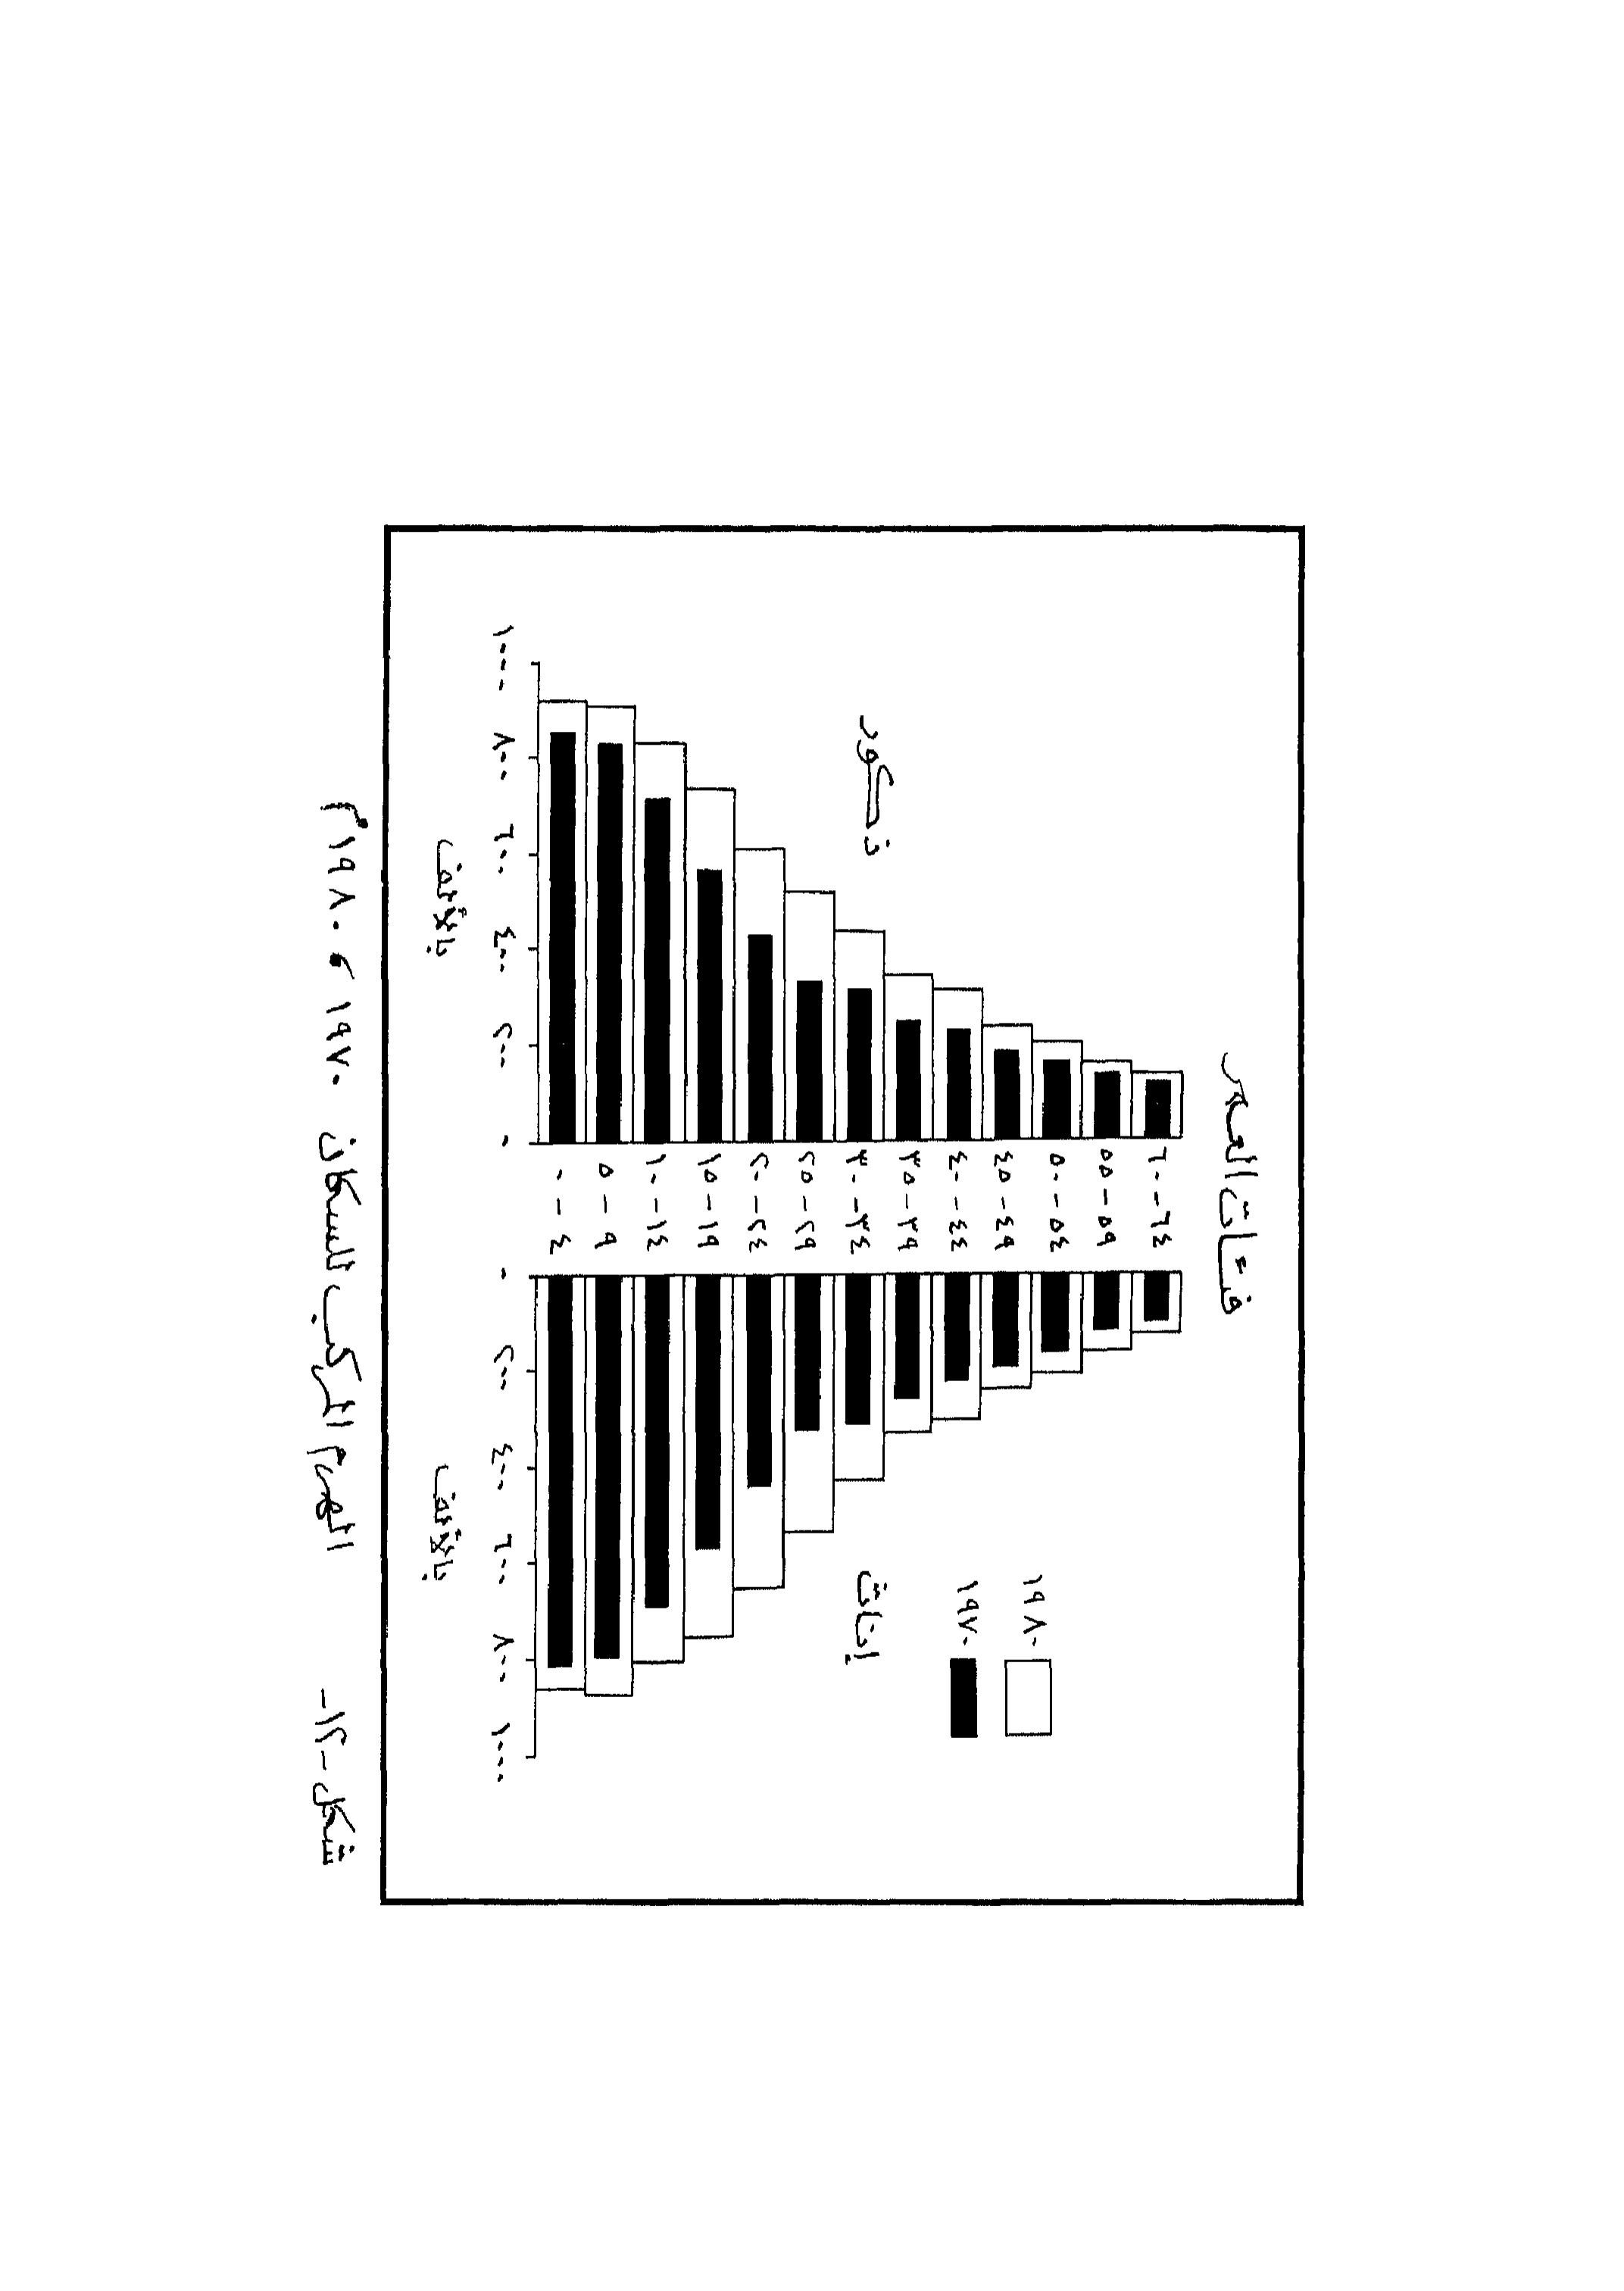 فئات العمر
٦٠-٦٤
٥٥-٥٩
٥٠-٥٤
٤٥-٤٩
٤٠-٤٤
٣٥-٣٩
٣٠-٣٤
٢٥-٢٩
٢٠-٢٤
١٥-١٩
١٠-١٤
٥-٩
٠-٤
ذكور
إناث
١٩٨٠
١٩٧٠
١٠٠٠ ٨٠٠ ٦٠٠ ٤٠٠ ٢٠٠ ٠
٠ ٢٠٠ ٤٠٠ ٦٠٠ ٨٠٠ ١٠٠٠
بالألف
بالألف
شكل -١٢- الهرم المركب للسكان ١٩٧٠ و ١٩٨٠م